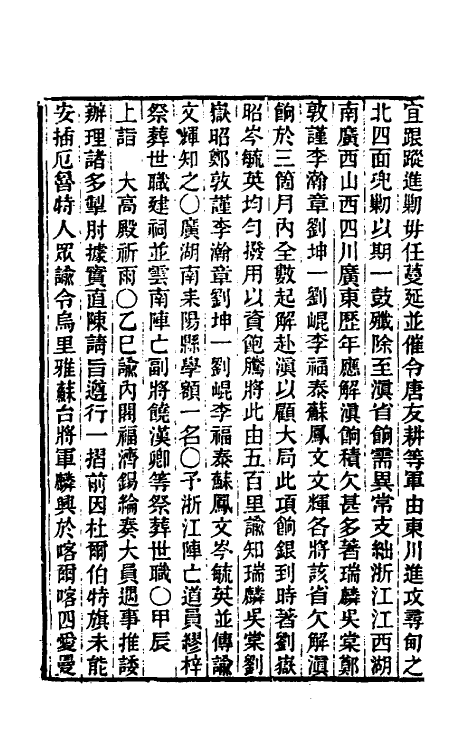 宜跟蹤進勦毋任蔓延並催令唐友耕等軍由東川進攻尋甸之
北四面兜勦以期一鼓殲除至滇省餉需異常支絀浙江江西湖
南廣西山西四川廣東歷年應解滇餉積欠甚多著瑞麟吳棠鄭
敦謹李瀚章劉坤一劉崐李福泰蘇鳳文文輝各將該省欠解滇
餉於三箇月內全數起解赴滇以顧大局此項餉銀到時著劉嶽
昭岑毓英均勻撥用以資飽騰將此由五百里諭知瑞麟吳棠劉
嶽昭鄭敦謹李瀚章劉坤一劉崐李福泰蘇鳳文岑毓英並傳諭
文輝知之〇廣湖南耒陽縣學額一名〇予浙江陣亡道員繆梓
祭葬世職建祠並雲南陣亡副將饒漢卿等祭葬世職〇甲辰
上詣 大高殿祈雨〇乙巳諭內閣福濟錫綸奏大員遇事推諉
辦理諸多掣肘據實直陳請旨遵行一摺前因杜爾伯特旗未能
安插厄魯特人眾諭令烏里雅蘇台將軍麟興於喀爾喀四愛曼